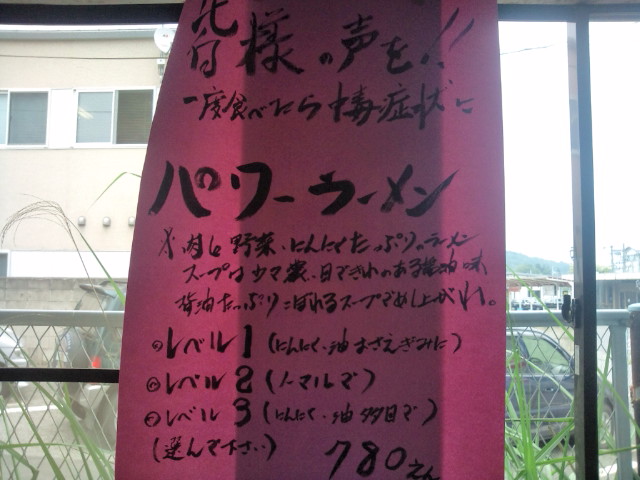 皆様の声を!!
一度食べたら中毒症状に
パワーラーメン
肉も野菜、にんにくたっぷりのラーメン
スープは少々濃い目できれのある醤油味
背油たっぷりこぼれるスープでめし上がれ。
レベル1(にんにく、油おさえぎみに)
レベル2(ノーマルで)
レベル3(にんにく、油多目で)
(選んで下さい)
780えん